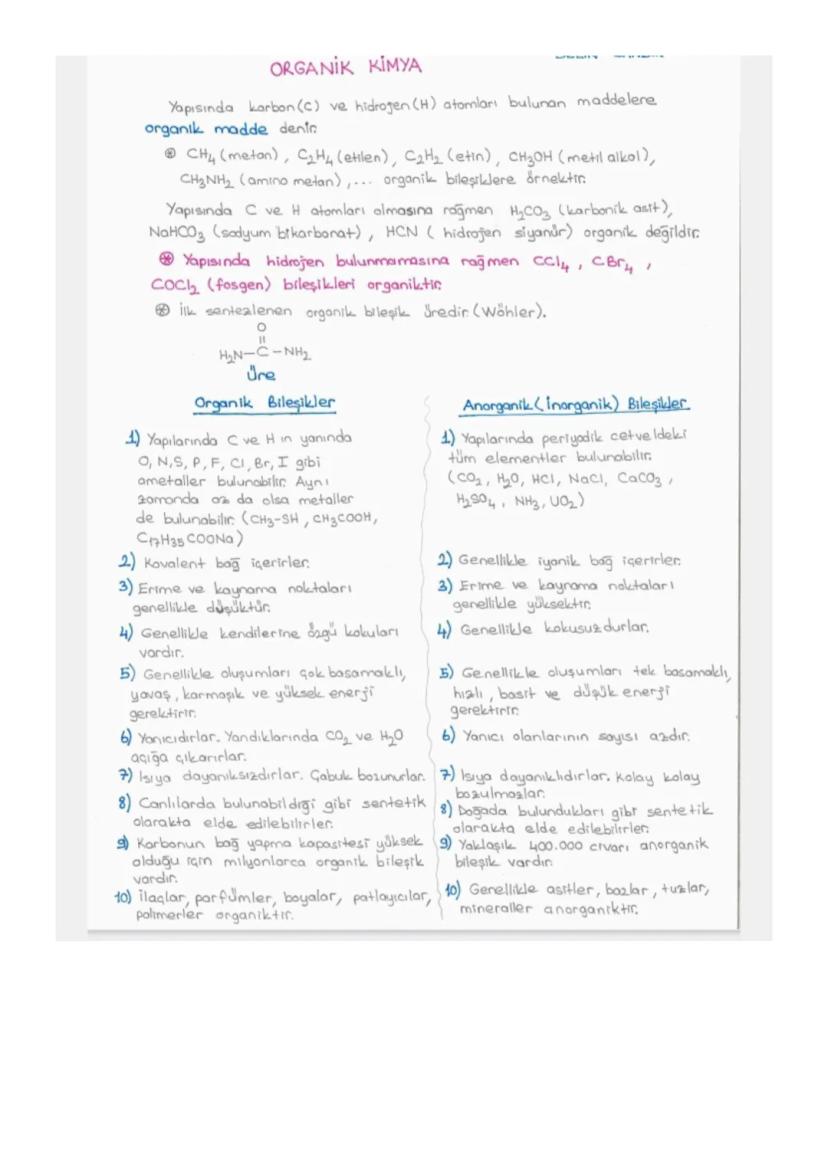 ORGANİK KİMYA
Yapısında karbon(C) ve hidrojen(H) atomları bulunan maddelere
organik madde denir.
⊛ CH₄ (metan), C₂H₄ (etilen), C₂H₂ (etin), CH₃OH (metil alkol),
CH₃NH₂ (amino metan), ... organik bileşiklere örnektir.
Yapısında C ve H atomları olmasına rağmen H₂CO₃ (karbonik asit),
NaHCO₃ (sodyum bikarbonat), HCN ( hidrojen siyanür) organik değildir.
⊛ Yapısında hidrojen bulunmamasına rağmen CCl₄, CBr₄,
COCl₂ (fosgen) bileşikleri organiktir.
⊛ İlk sentezlenen organik bileşik üredir. (Wöhler).
O
||
H₂N-C-NH₂
Üre
Organik Bileşikler
1) Yapılarında C ve H ın yanında
O, N, S, P, F, Cl, Br, I gibi
ametaller bulunabilir. Aynı
zamanda az da olsa metaller
de bulunabilir. (CH₃-SH, CH₃COOH,
C₁₇H₃₅COONa)
2) Kovalent bağ içerirler.
3) Erime ve kaynama noktaları
genellikle düşüktür.
4) Genellikle kendilerine özgü kokuları
vardır.
5) Genellikle oluşumları çok basamaklı,
yavaş, karmaşık ve yüksek enerji
gerektirir.
6) Yanıcıdırlar. Yandıklarında CO₂ ve H₂O
açığa çıkarırlar.
7) Isıya dayanıksızdırlar. Çabuk bozunurlar.
8) Canlılarda bulunabildiği gibi sentetik
olarakta elde edilebilirler.
9) Karbonun bağ yapma kapasitesi yüksek
olduğu için milyonlarca organik bileşik
vardır.
10) İlaçlar, parfümler, boyalar, patlayıcılar,
polimerler organiktir.
Anorganik (İnorganik) Bileşikler
1) Yapılarında periyodik cetveldeki
tüm elementler bulunabilir.
(CO₂, H₂O, HCl, NaCl, CaCO₃,
H₂SO₄, NH₃, UO₂)
2) Genellikle iyonik bağ içerirler.
3) Erime ve kaynama noktaları
genellikle yüksektir.
4) Genellikle kokusuzdurlar.
5) Genellikle oluşumları tek basamaklı,
hızlı, basit ve düşük enerji
gerektirir.
6) Yanıcı olanlarının sayısı azdır.
7) Isıya dayanıklıdırlar. Kolay kolay
bozulmazlar.
8) Doğada bulundukları gibi sentetik
olarakta elde edilebilirler.
9) Yaklaşık 400.000 civarı anorganik
bileşik vardır.
10) Genellikle asitler, bazlar, tuzlar,
mineraller anorganiktir.